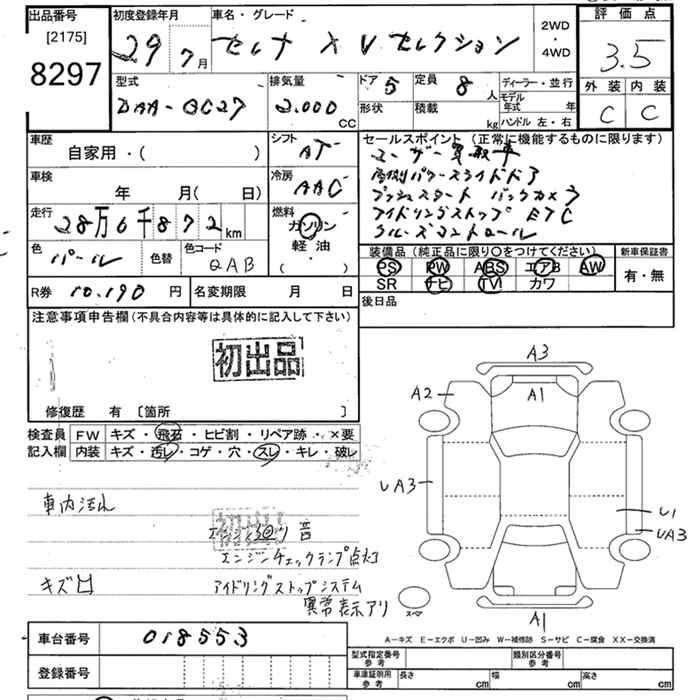 出品番号 初度登録年月 車名・グレード 2WD・4WD 評価点
[2175]
8297
29 7月 セレナ XVセレクション 3.5
型式 排気量 ドア 5 定員 8人 ディーラー・並行 外装 内装
DAA-GC27 2.000cc 形状 積載 kg モデル年式 年 C C
ハンドル 左・右
車歴 シフト セールスポイント (正常に機能するものに限ります)
自家用・( ) AT ユーザー買取車
車検 冷房 両側パワースライドドア
年 月(日) AAC プッシュスタート バックカメラ
走行 燃料 アイドリングストップ ETC
28万6千872km ガソリン クルーズコントロール
色 色替 色コード 軽油
パール QAB ・( )
装備品 (純正品に限り○をつけてください) 新車保証書
PS PW ABS エアB AW 有・無
SR ナビ TV カワ
R券 10.190円 名変期限 月 日 後日品
注意事項申告欄(不具合内容等は具体的に記入して下さい)
初出品
修復歴 有 [箇所 ]
検査員 FW キズ・飛石・ヒビ割・リペア跡・×要
記入欄 内装 キズ・汚レ・コゲ・穴・スレ・キレ・破レ
A3
A2 A1
UA3
U1
UA3
A1
初出品
音
エンジンチェックランプ点灯
アイドリングストップシステム
異常表示アリ
A-キズ E-エクボ U-凹み W-補修跡 S-サビ C-腐食 XX-交換済
車台番号 018553
登録番号
型式指定番号 参考 類別区分番号 参考
車庫証明用 参考 長さ cm 幅 cm 高さ cm